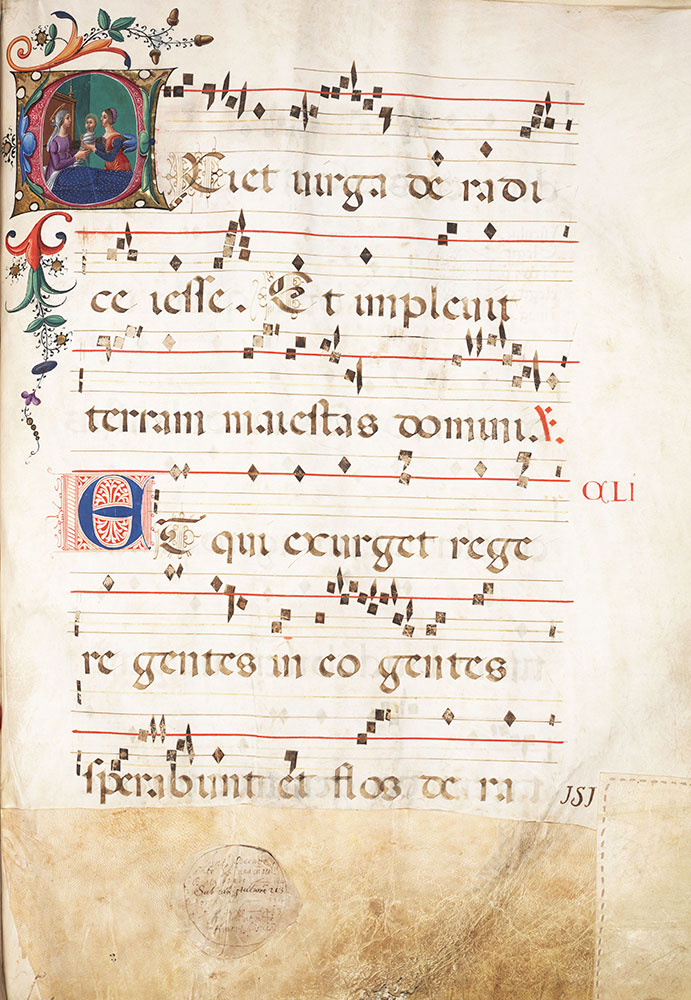 ORiet uirga de radi
ce iesse. Et impleuit
terram maiestas domini. ℣.
ET qui exurget rege
OCLI
re gentes in eo gentes
sperabunt et flos de ra
JSJ